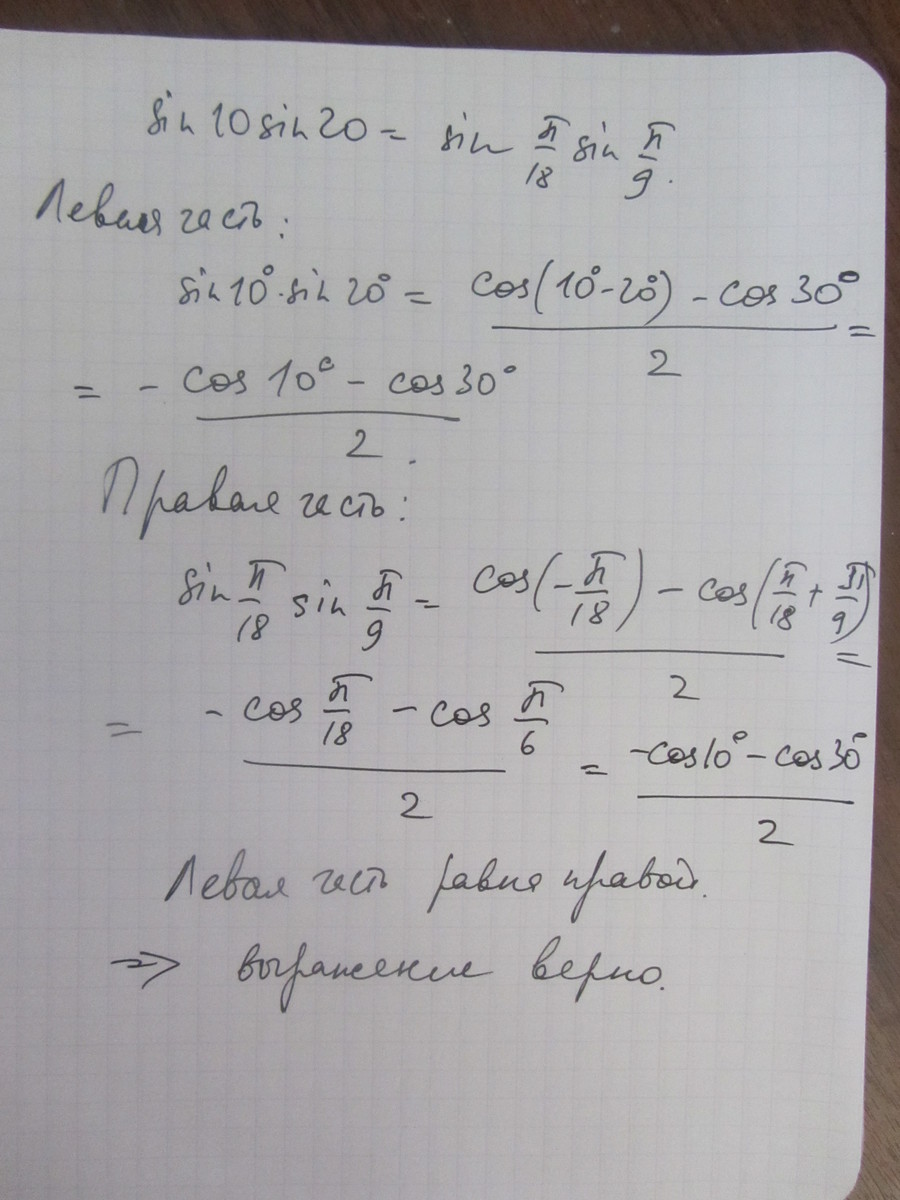 sin 10 sin 20 = sin π/18 sin π/9.
Левая часть:
sin 10° · sin 20° = (cos(10° - 20°) - cos 30°)/2 =
= (- cos 10° - cos 30°)/2.
Правая часть:
sin π/18 sin π/9 = (cos(-π/18) - cos(π/18 + π/9))/2 =
= (- cos π/18 - cos π/6)/2 = (-cos 10° - cos 30°)/2
Левая часть равна правой.
⇒ выражение верно.